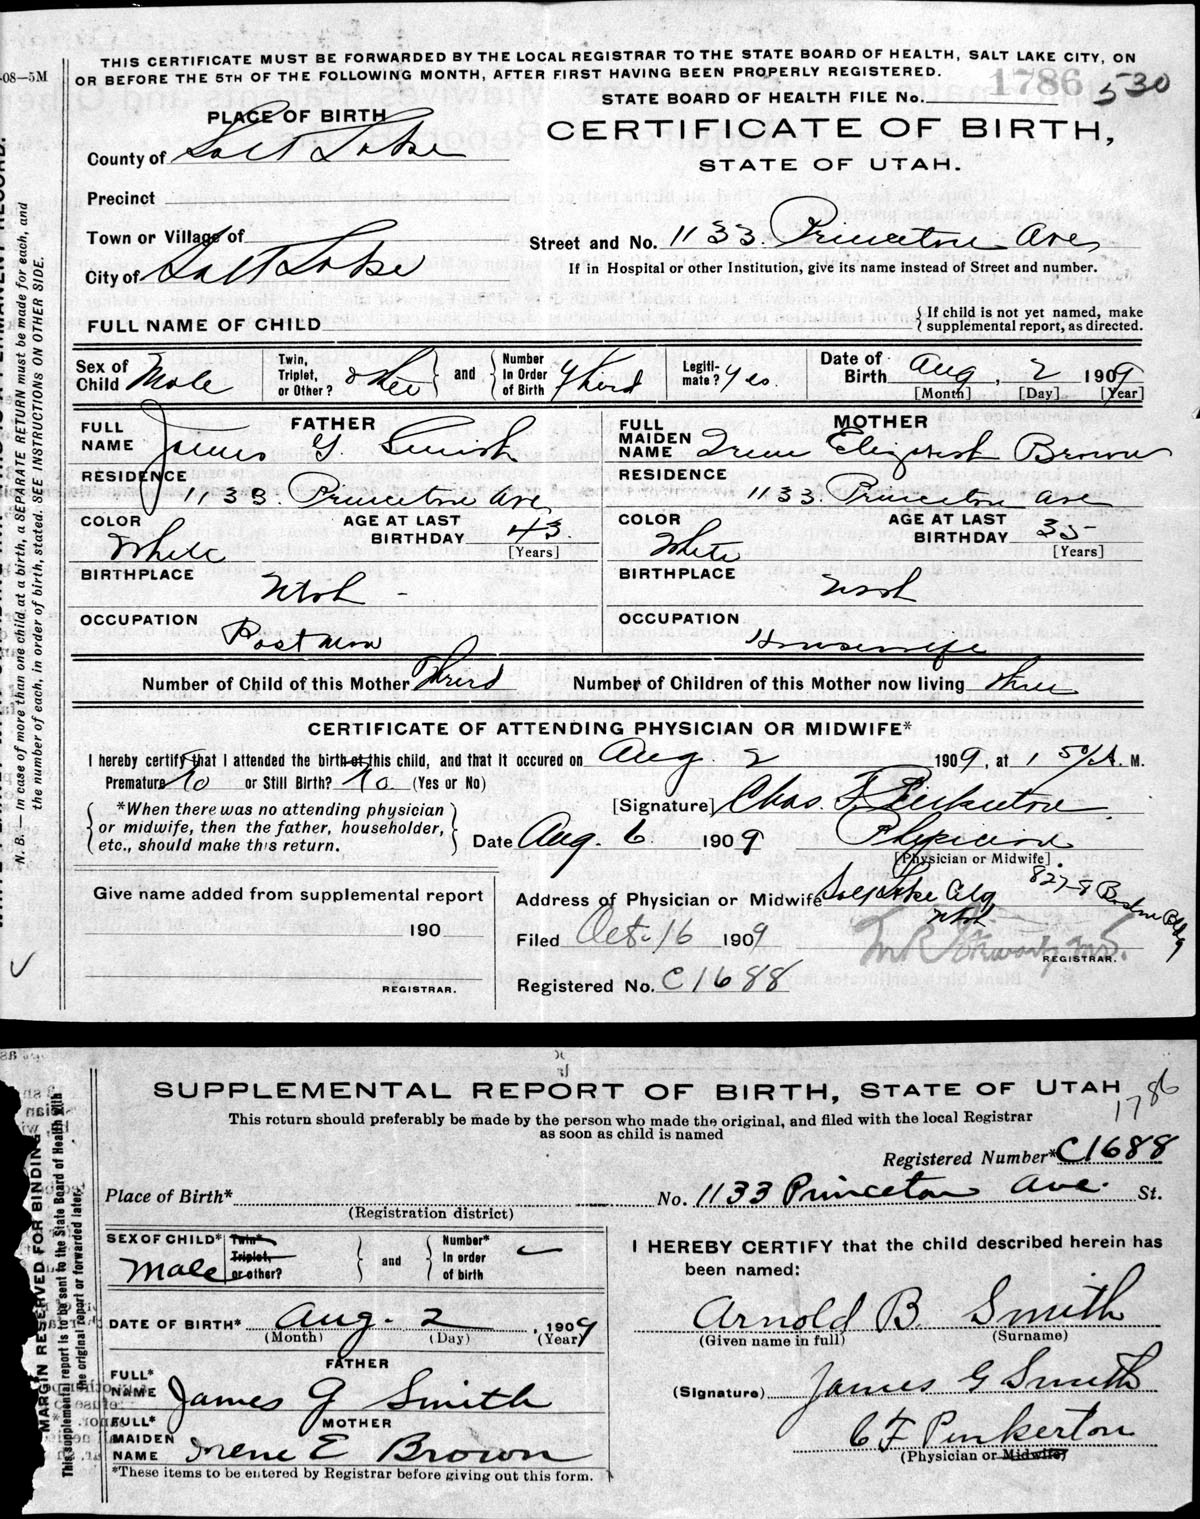 THIS CERTIFICATE MUST BE FORWARDED BY THE LOCAL REGISTRAR TO THE STATE BOARD OF HEALTH, SALT LAKE CITY, ON
OR BEFORE THE 5TH OF THE FOLLOWING MONTH, AFTER FIRST HAVING BEEN PROPERLY REGISTERED.
08—5M
STATE BOARD OF HEALTH FILE No. 1786 530
PLACE OF BIRTH
CERTIFICATE OF BIRTH,
STATE OF UTAH.
County of Salt Lake
Precinct
Town or Village of
Street and No. 1133 Princeton Ave
City of Salt Lake
If in Hospital or other Institution, give its name instead of Street and number.
FULL NAME OF CHILD
If child is not yet named, make
supplemental report, as directed.
Sex of Child Male
Twin, Triplet, or Other? other and Number In Order of Birth Third
Legiti-mate? Yes.
Date of Birth Aug, 2 1909
[Month] [Day] [Year]
FATHER
FULL NAME James G. Smith
RESIDENCE 1133. Princeton Ave
COLOR White
AGE AT LAST BIRTHDAY 43.
[Years]
BIRTHPLACE Utah -
OCCUPATION Postman
MOTHER
FULL MAIDEN NAME Irene Elizabeth Brown
RESIDENCE 1133. Princeton Ave
COLOR White
AGE AT LAST BIRTHDAY 35
[Years]
BIRTHPLACE Utah
OCCUPATION Housewife
Number of Child of this Mother Third
Number of Children of this Mother now living three
CERTIFICATE OF ATTENDING PHYSICIAN OR MIDWIFE*
I hereby certify that I attended the birth of this child, and that it occured on Aug. 2 1909, at 1 50/A. M.
Premature No or Still Birth? No. (Yes or No)
*When there was no attending physician
or midwife, then the father, householder,
etc., should make this return.
[Signature] Chas. F. Pinkerton
Date Aug. 6 1909 Physician
[Physician or Midwife]
Give name added from supplemental report
190
REGISTRAR.
Address of Physician or Midwife Salt Lake City Utah 827-8 Boston Bldg
Filed Oct. 16 1909
REGISTRAR.
Registered No. C1688
N. B.— In case of more than one child at a birth, a SEPARATE RETURN must be made for each, and
the number of each, in order of birth, stated. SEE INSTRUCTIONS ON OTHER SIDE.
SUPPLEMENTAL REPORT OF BIRTH, STATE OF UTAH
1786
This return should preferably be made by the person who made the original, and filed with the local Registrar
as soon as child is named
Registered Number* C1688
Place of Birth* No. 1133 Princeton Ave. St.
(Registration district)
SEX OF CHILD* Male
Twin* Triplet, or other? and Number* In order of birth
DATE OF BIRTH* Aug. 2, 1909
(Month) (Day) (Year)
FATHER
FULL* NAME James G Smith
MOTHER
FULL* MAIDEN NAME Irene E Brown
*These items to be entered by Registrar before giving out this form.
I HEREBY CERTIFY that the child described herein has
been named:
Arnold B Smith
(Given name in full) (Surname)
(Signature) James G Smith
C F Pinkerton
(Physician or Midwife)
MARGIN RESERVED FOR BINDING
This supplemental report is to be sent to the State Board of Health with
the original report or forwarded later.